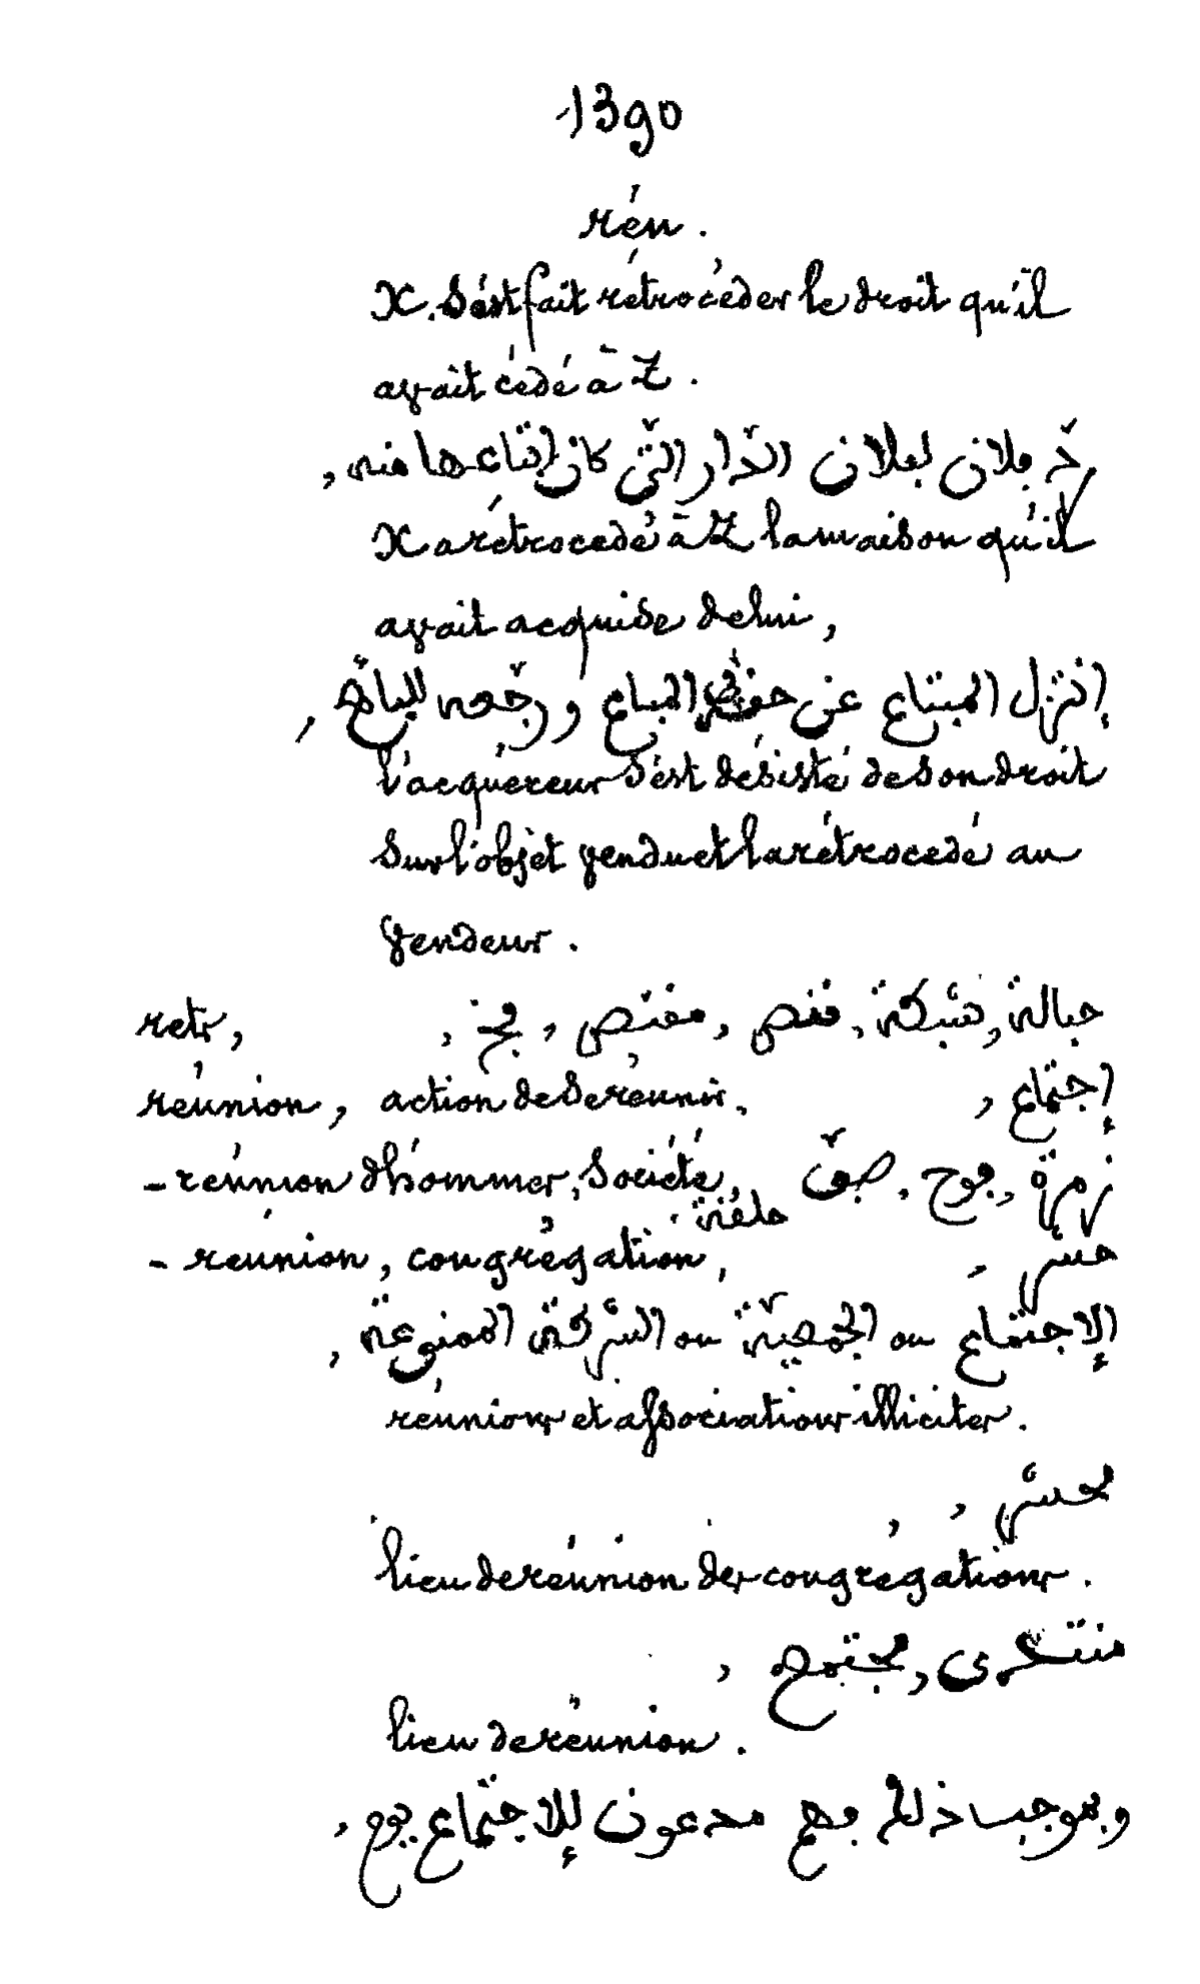 1390
réu.
X. s'est fait rétrocéder le droit qu'il
avait cédé à Z.
ردّ فلان لفلان الدّار الّتي كان إبتاعها منه,
X a rétrocédé à Z la maison qu'il
avait acquise de lui,
إنتزل المبتاع عن حقّه في المباع ورجّعه للبائع,
l'acquéreur s'est désisté de son droit
sur l'objet vendu et l'a rétrocédé au
vendeur.
rets, حبالة, شبكة, قنص, مقنص, فخّ,
réunion, action de se réunir, إجتماع,
- réunion d'hommes, société, زمرة, فوج, صفّ
حلقة.
- réunion, congrégation, حشر,
الإجتماع ou الجمعيّة ou الشّركة الممنوعة,
réunions et associations illicites.
محشر,
lieu de réunion des congrégations.
منتدى, مجتمع,
lieu de réunion.
وبموجب ذلك فهم مدعون للإجتماع يوم,